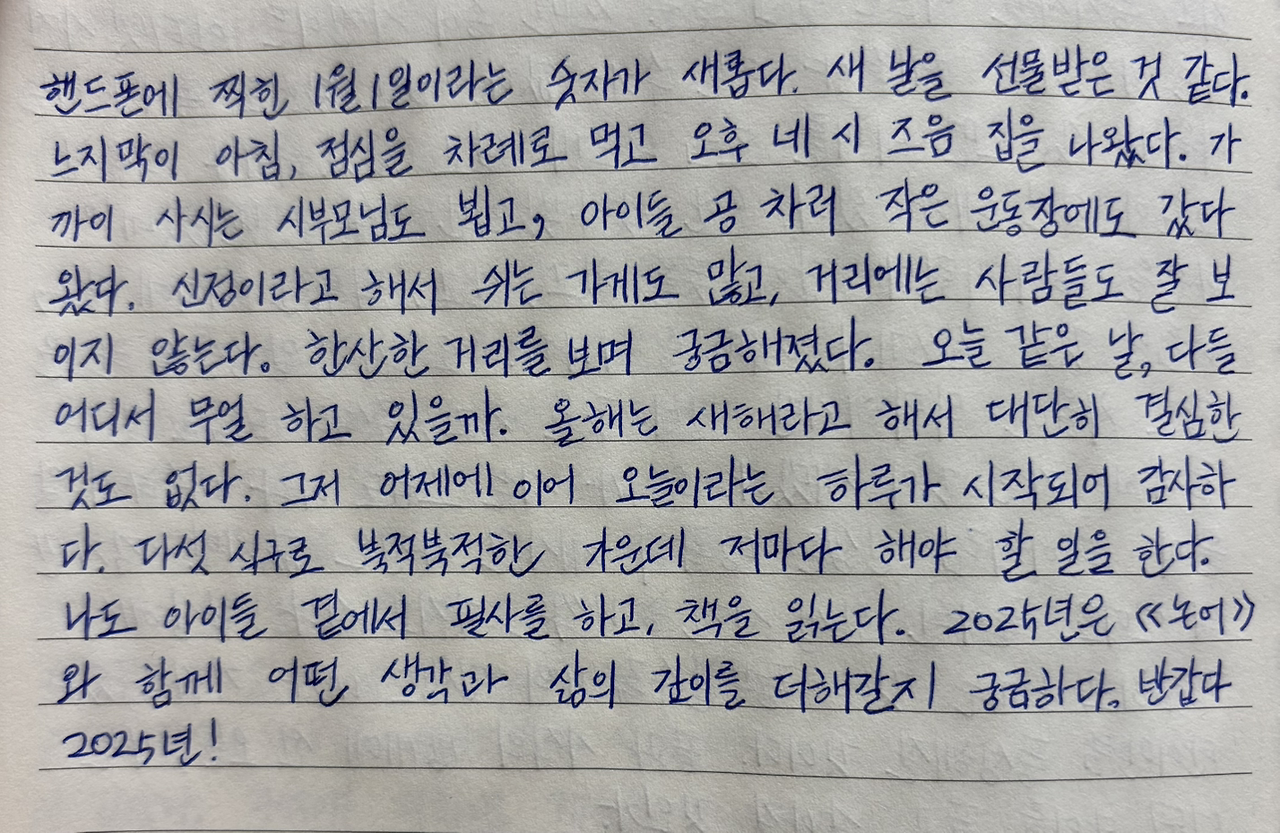 핸드폰에 찍힌 1월 1일이라는 숫자가 새롭다. 새 날을 선물받은 것 같다.
느지막이 아침, 점심을 차례로 먹고 오후 네 시 즈음 집을 나왔다. 가
까이 사시는 시부모님도 뵙고, 아이들 공 차러 작은 운동장에도 갔다
왔다. 신정이라고 해서 쉬는 가게도 많고, 거리에는 사람들도 잘 보
이지 않는다. 한산한 거리를 보며 궁금해졌다. 오늘 같은 날, 다들
어디서 무얼 하고 있을까. 올해는 새해라고 해서 대단히 결심한
것도 없다. 그저 어제에 이어 오늘이라는 하루가 시작되어 감사하
다. 다섯 식구로 북적북적한 가운데 저마다 해야 할 일을 한다.
나도 아이들 곁에서 필사를 하고, 책을 읽는다. 2025년은 《논어》
와 함께 어떤 생각과 삶의 깊이를 더해갈지 궁금하다. 반갑다
2025년!